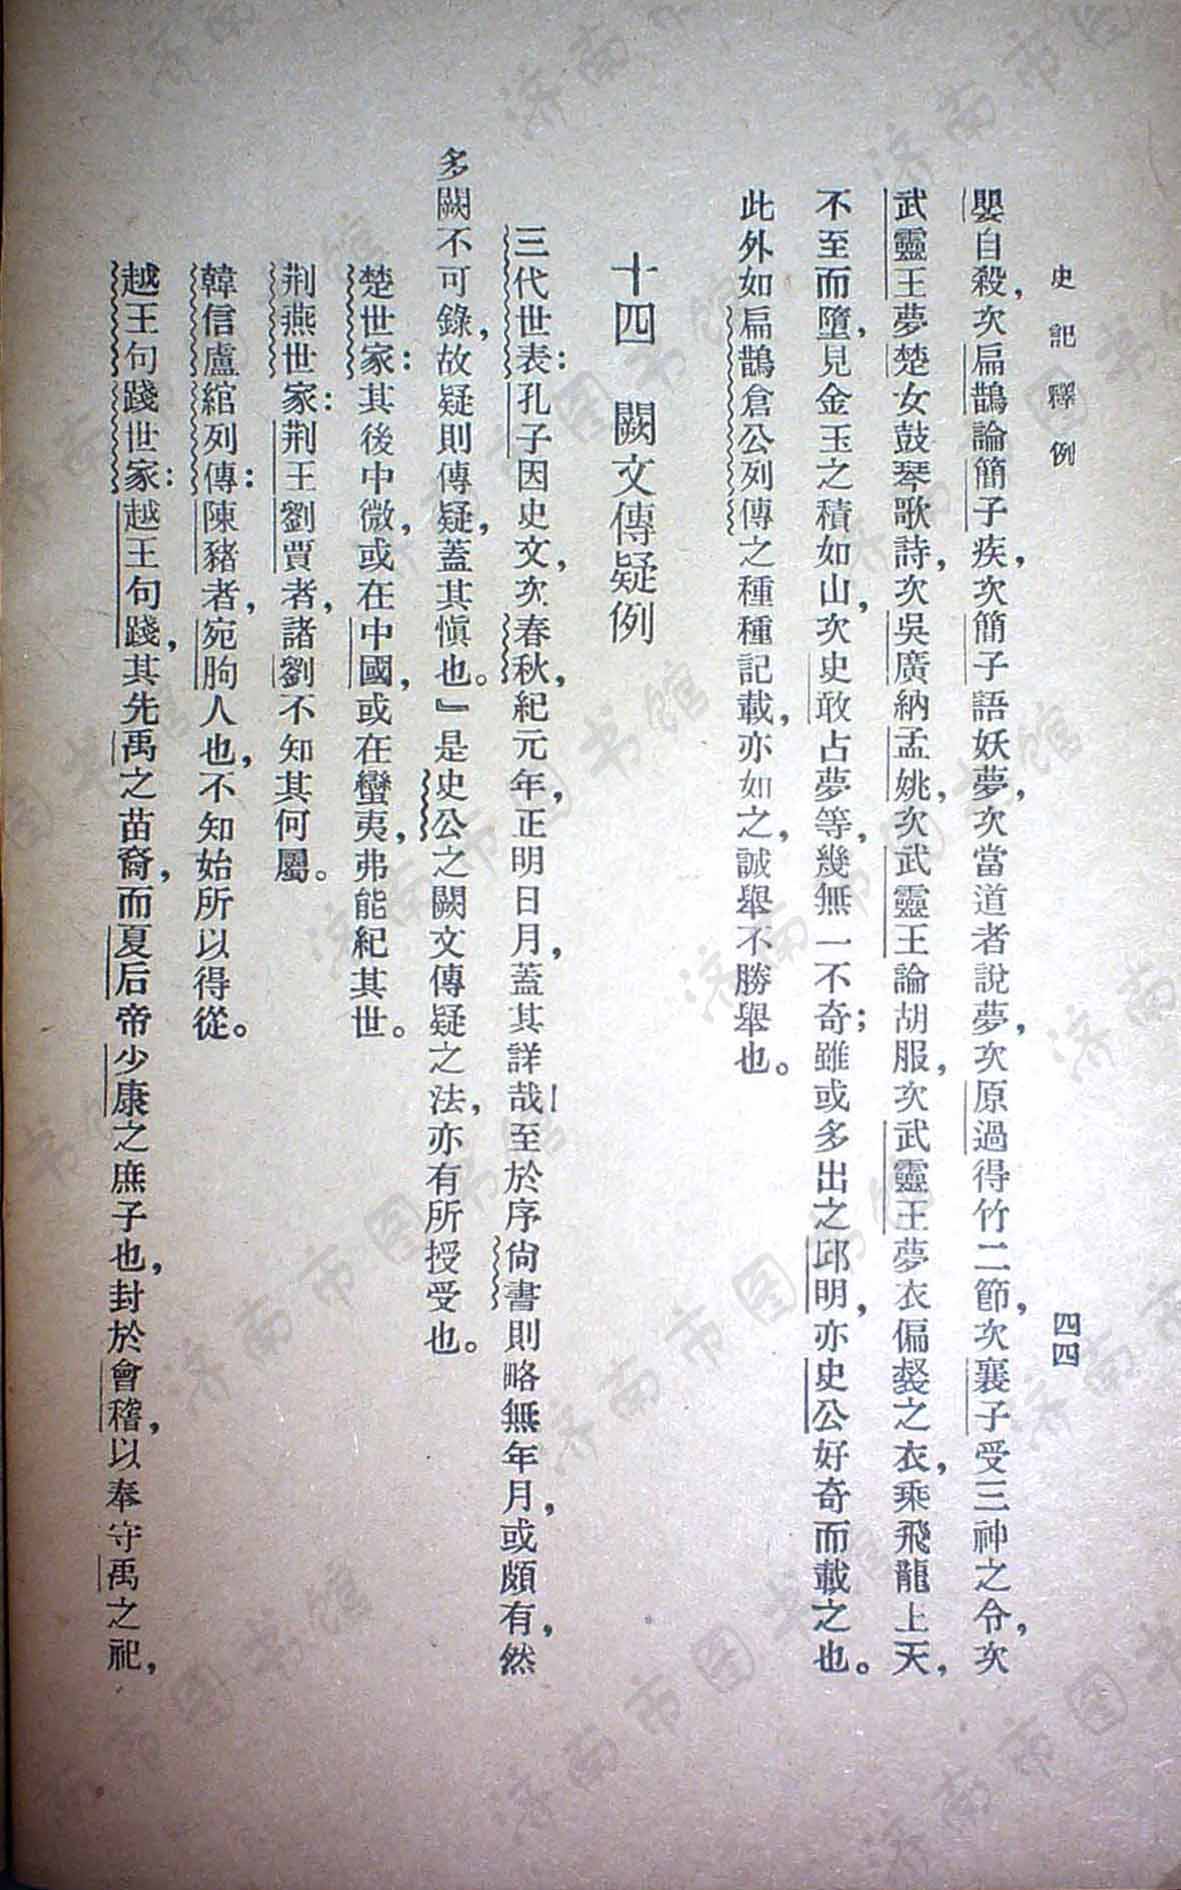 史記釋例
四四
嬰自殺，次扁鵲論簡子疾，次簡子語妖夢，次當道者說夢，次原過得竹二節，次襄子受三神之令，次
武靈王夢楚女鼓琴歌詩，次吳廣納孟姚，次武靈王論胡服，次武靈王夢衣偏裻之衣，乘飛龍上天，
不至而墮，見金玉之積如山，次史敢占夢等，幾無一不奇；雖或多出之邱明，亦史公好奇而載之也。
此外如扁鵲倉公列傳之種種記載，亦如之，誠舉不勝舉也。
十四　闕文傳疑例
三代世表：孔子因史文，次春秋，紀元年，正明日月，蓋其詳哉！至於序尙書則略無年月，或頗有，然
多闕不可錄，故疑則傳疑，蓋其愼也。』是史公之闕文傳疑之法，亦有所授受也。
楚世家：其後中微，或在中國，或在蠻夷，弗能紀其世。
荆燕世家：荆王劉賈者，諸劉不知其何屬。
韓信盧綰列傳：陳豨者，宛朐人也，不知始所以得從。
越王句踐世家：越王句踐，其先禹之苗裔，而夏后帝少康之庶子也，封於會稽，以奉守禹之祀，
济南市图书馆